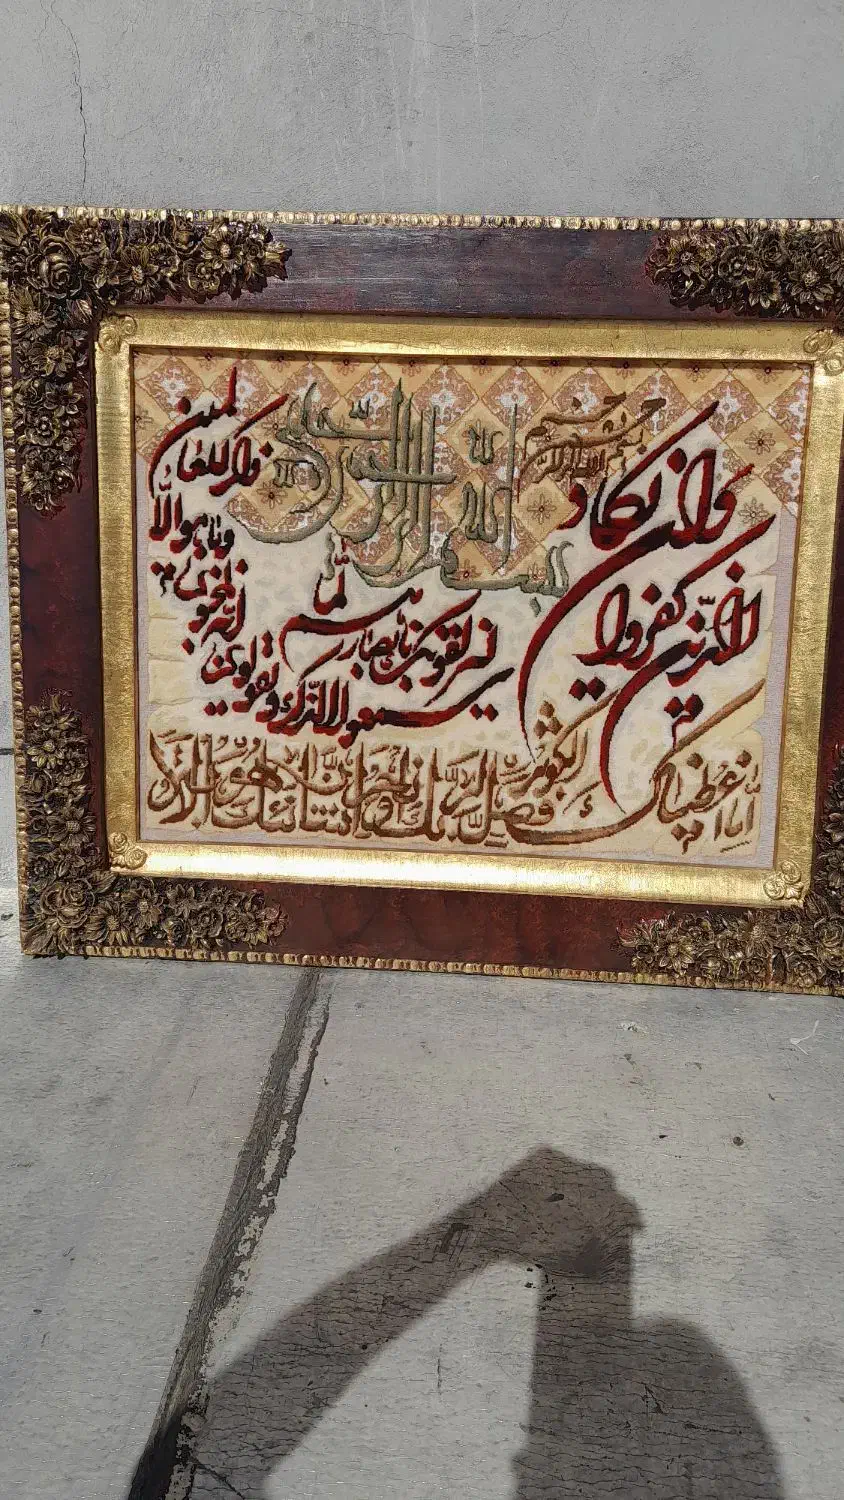 بسم الله الرحمن الرحیم
بسم الله الرحمن الرحیم
وان یکاد
الذین کفروا
لیزلقونک بابصارهم لما
سمعوا الذکر و یقولون
انه لمجنون
و ما هو الا
ذکر للعالمین
انا اعطیناک الکوثر
فصل لربک وانحر ان شانئک هو الابتر